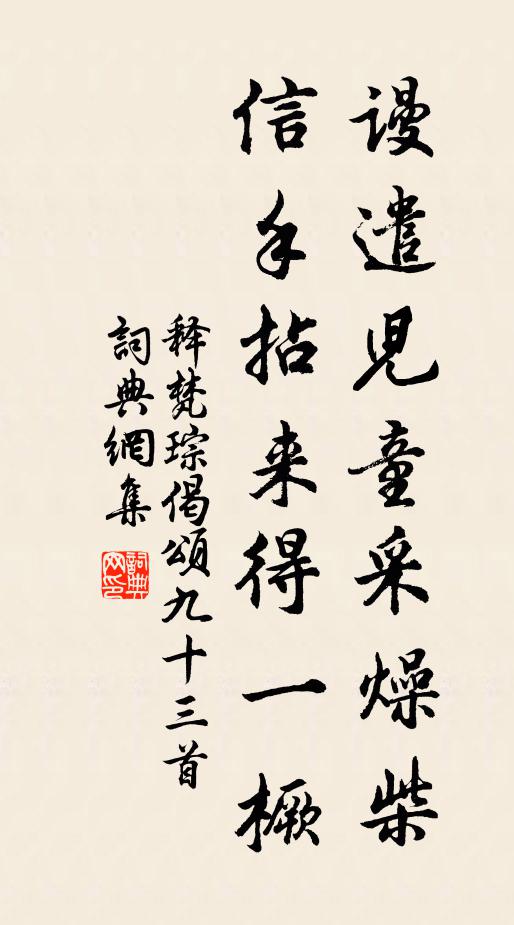 谩遣児童采燥柴
信手拈来得一橛
释梵琮偈颂九十三首
詞典網集
詞典网印